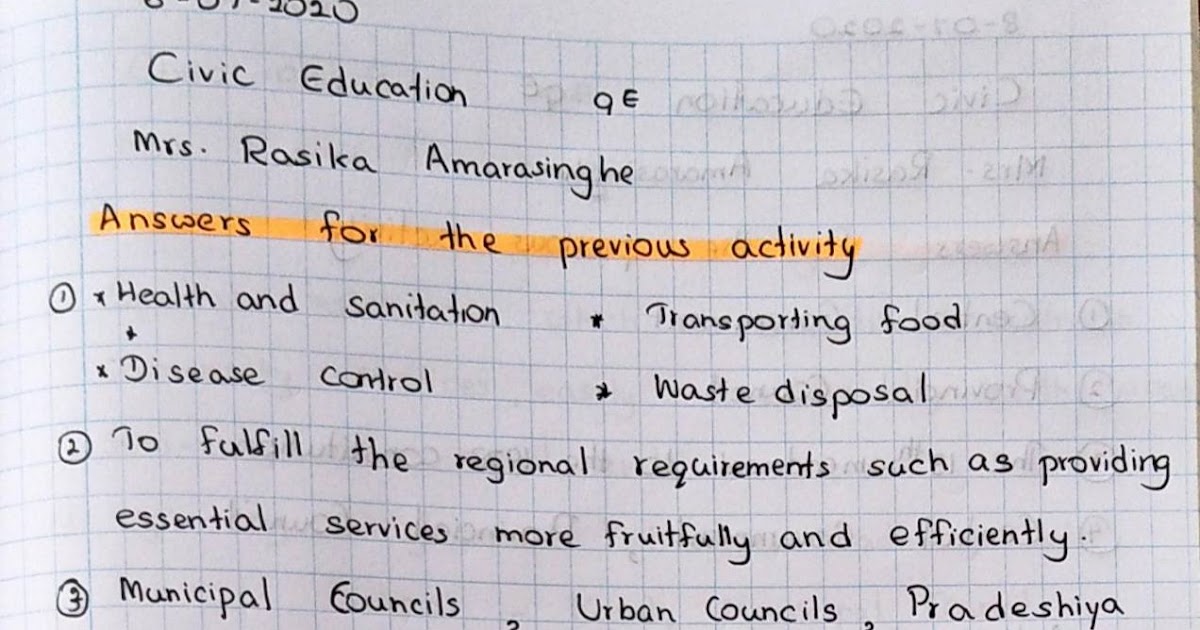 8-07-2020
Civic Education 9E
Mrs. Rasika Amarasinghe
Answers for the previous activity
① * Health and sanitation * Transporting food
* Disease control * Waste disposal
② To fulfill the regional requirements such as providing
essential services more fruitfully and efficiently.
③ Municipal Councils, Urban Councils, Pradeshiya